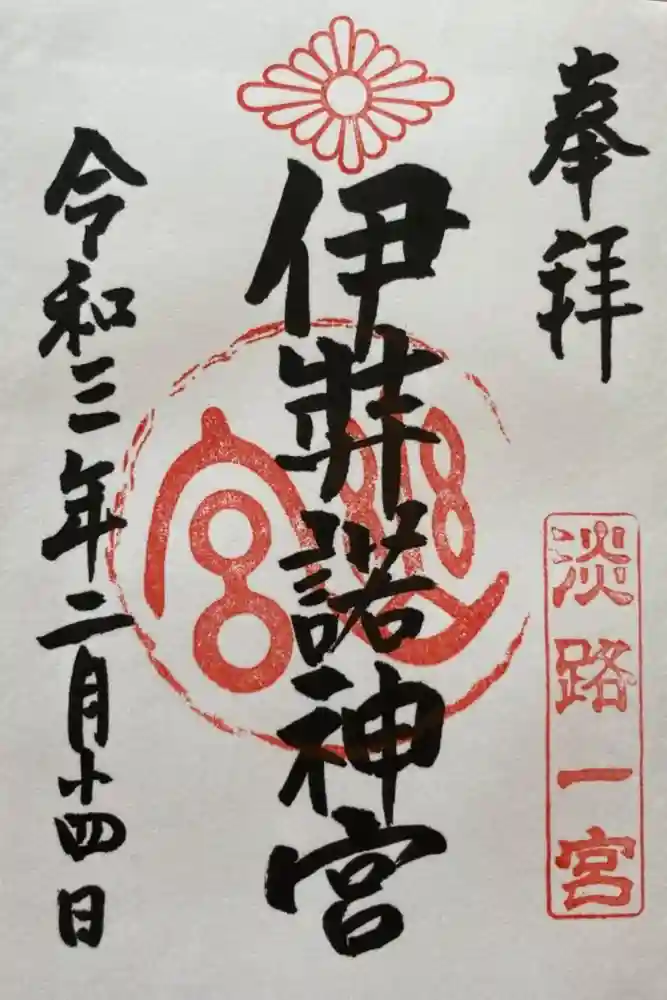 奉拝
淡路一宮
伊弉諾神宮
令和三年二月十四日